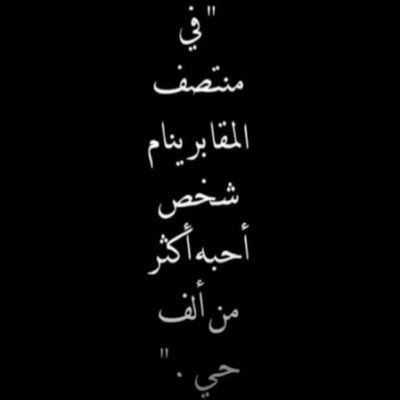 "في
منتصف
المقابر ينام
شخص
أحبه أكثر
من ألف
حي . "